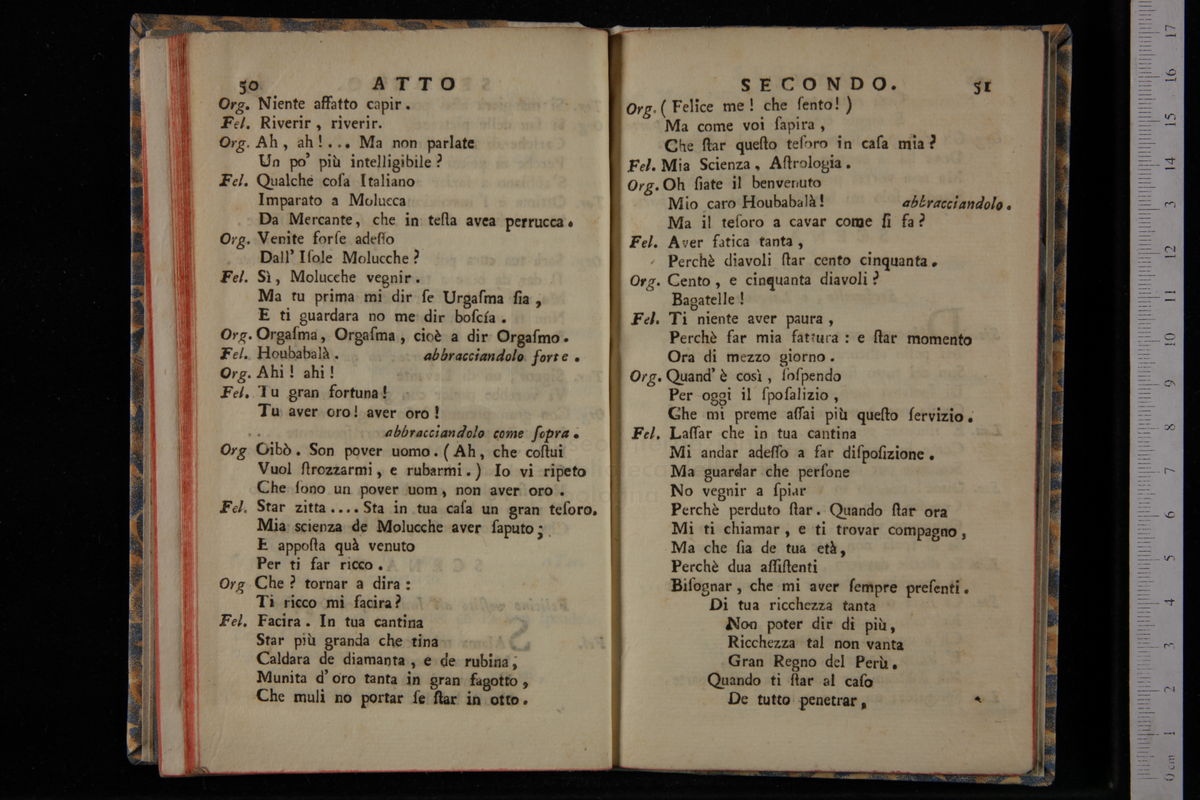 50 ATTO
Org. Niente affatto capir.
Fel. Riverir, riverir.
Org. Ah, ah!... Ma non parlate
Un po' più intelligibile?
Fel. Qualche coſa Italiano
Imparato a Molucca
Da Mercante, che in teſta avea perrucca.
Org. Venite forſe adeſſo
Dall' Iſole Molucche?
Fel. Sì, Molucche vegnir.
Ma tu prima mi dir ſe Urgaſma ſia,
E ti guardara no me dir boſcía.
Org. Orgaſma, Orgaſma, cioè a dir Orgaſmo.
Fel. Houbabalà. abbracciandolo forte.
Org. Ahi! ahi!
Fel. Tu gran fortuna!
Tu aver oro! aver oro!
abbracciandolo come ſopra.
Org Oibò. Son pover uomo. (Ah, che coſtui
Vuol ſtrozzarmi, e rubarmi.) Io vi ripeto
Che ſono un pover uom, non aver oro.
Fel. Star zitta.... Sta in tua caſa un gran teſoro.
Mia scienza de Molucche aver ſaputo;
E appoſta quà venuto
Per ti far ricco.
Org Che? tornar a dira:
Ti ricco mi facira?
Fel. Facira. In tua cantina
Star più granda che tina
Caldara de diamanta, e de rubina,
Munita d'oro tanta in gran fagotto,
Che muli no portar ſe ſtar in otto.
SECONDO. 51
Org. (Felice me! che ſento!)
Ma come voi ſapira,
Che ſtar queſto teſoro in caſa mia?
Fel. Mia Scienza, Aſtrologia.
Org. Oh ſiate il benvenuto
Mio caro Houbabalà! abbracciandolo.
Ma il teſoro a cavar come ſi fa?
Fel. Aver fatica tanta,
Perchè diavoli ſtar cento cinquanta.
Org. Cento, e cinquanta diavoli?
Bagatelle!
Fel. Ti niente aver paura,
Perchè far mia fattura: e ſtar momento
Ora di mezzo giorno.
Org. Quand' è così, ſoſpendo
Per oggi il ſpoſalizio,
Che mi preme aſſai più queſto ſervizio.
Fel. Laſſar che in tua cantina
Mi andar adeſſo a far diſpoſizione.
Ma guardar che perſone
No vegnir a ſpiar
Perchè perduto ſtar. Quando ſtar ora
Mi ti chiamar, e ti trovar compagno,
Ma che ſia de tua età,
Perchè dua aſſiſtenti
Biſognar, che mi aver ſempre preſenti.
Di tua ricchezza tanta
Non poter dir di più,
Ricchezza tal non vanta
Gran Regno del Perù.
Quando ti ſtar al caſo
De tutto penetrar,